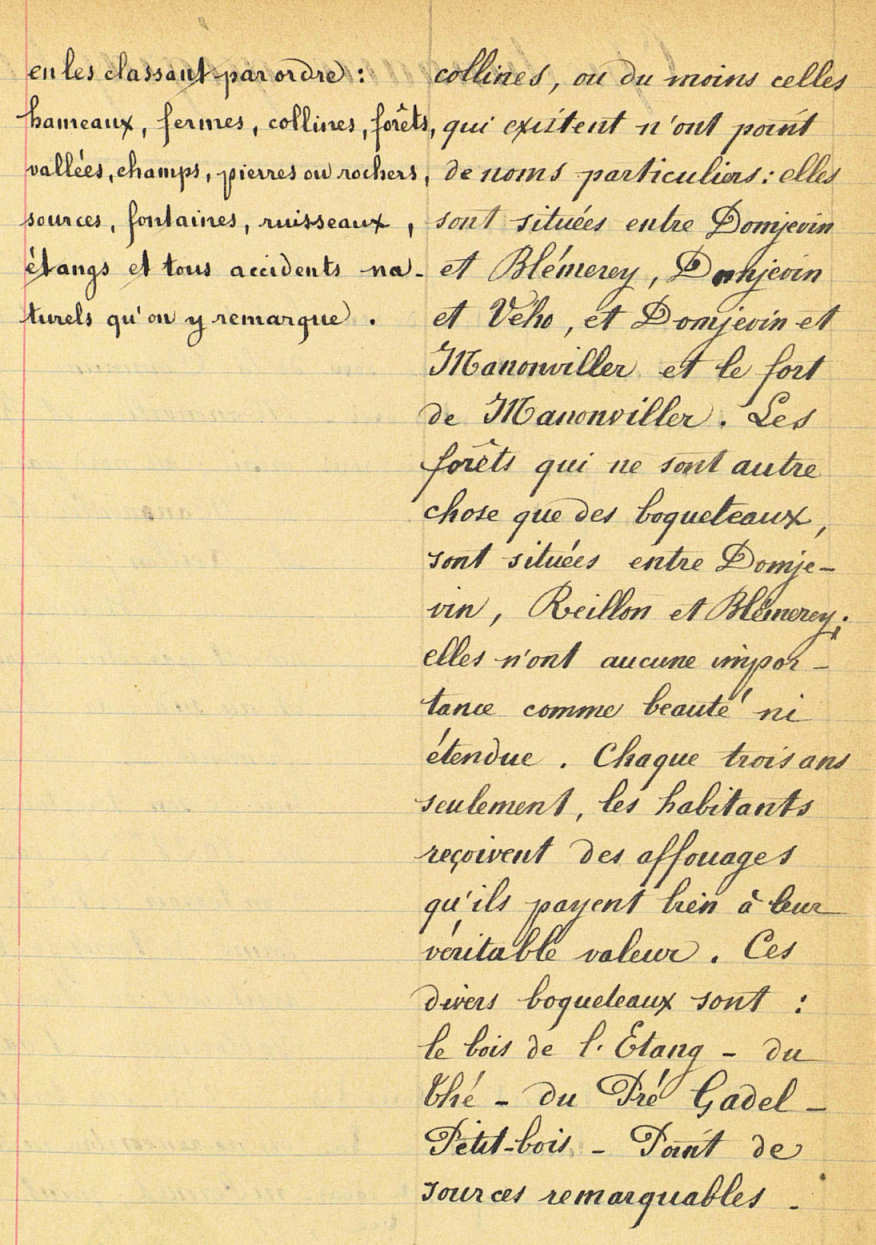 en les classant par ordre :
hameaux, fermes, collines, forêts,
vallées, champs, pierres ou rochers,
sources, fontaines, ruisseaux,
étangs et tous accidents na-
turels qu'on y remarque.
collines, ou du moins celles
qui existent n'ont point
de noms particuliers : elles
sont situées entre Domjevin
et Blémerey, Domjevin
et Vého, et Domjevin et
Manonviller et le fort
de Manonviller. Les
forêts qui ne sont autre
chose que des boqueteaux,
sont situées entre Domje-
vin, Reillon et Blémerey ;
elles n'ont aucune impor-
tance comme beauté ni
étendue. Chaque trois ans
seulement, les habitants
reçoivent des affouages
qu'ils payent bien à leur
véritable valeur. Ces
divers boqueteaux sont :
le bois de l'Etang - du
Thé - du Pré Gadel -
Petit-bois - Point de
sources remarquables.